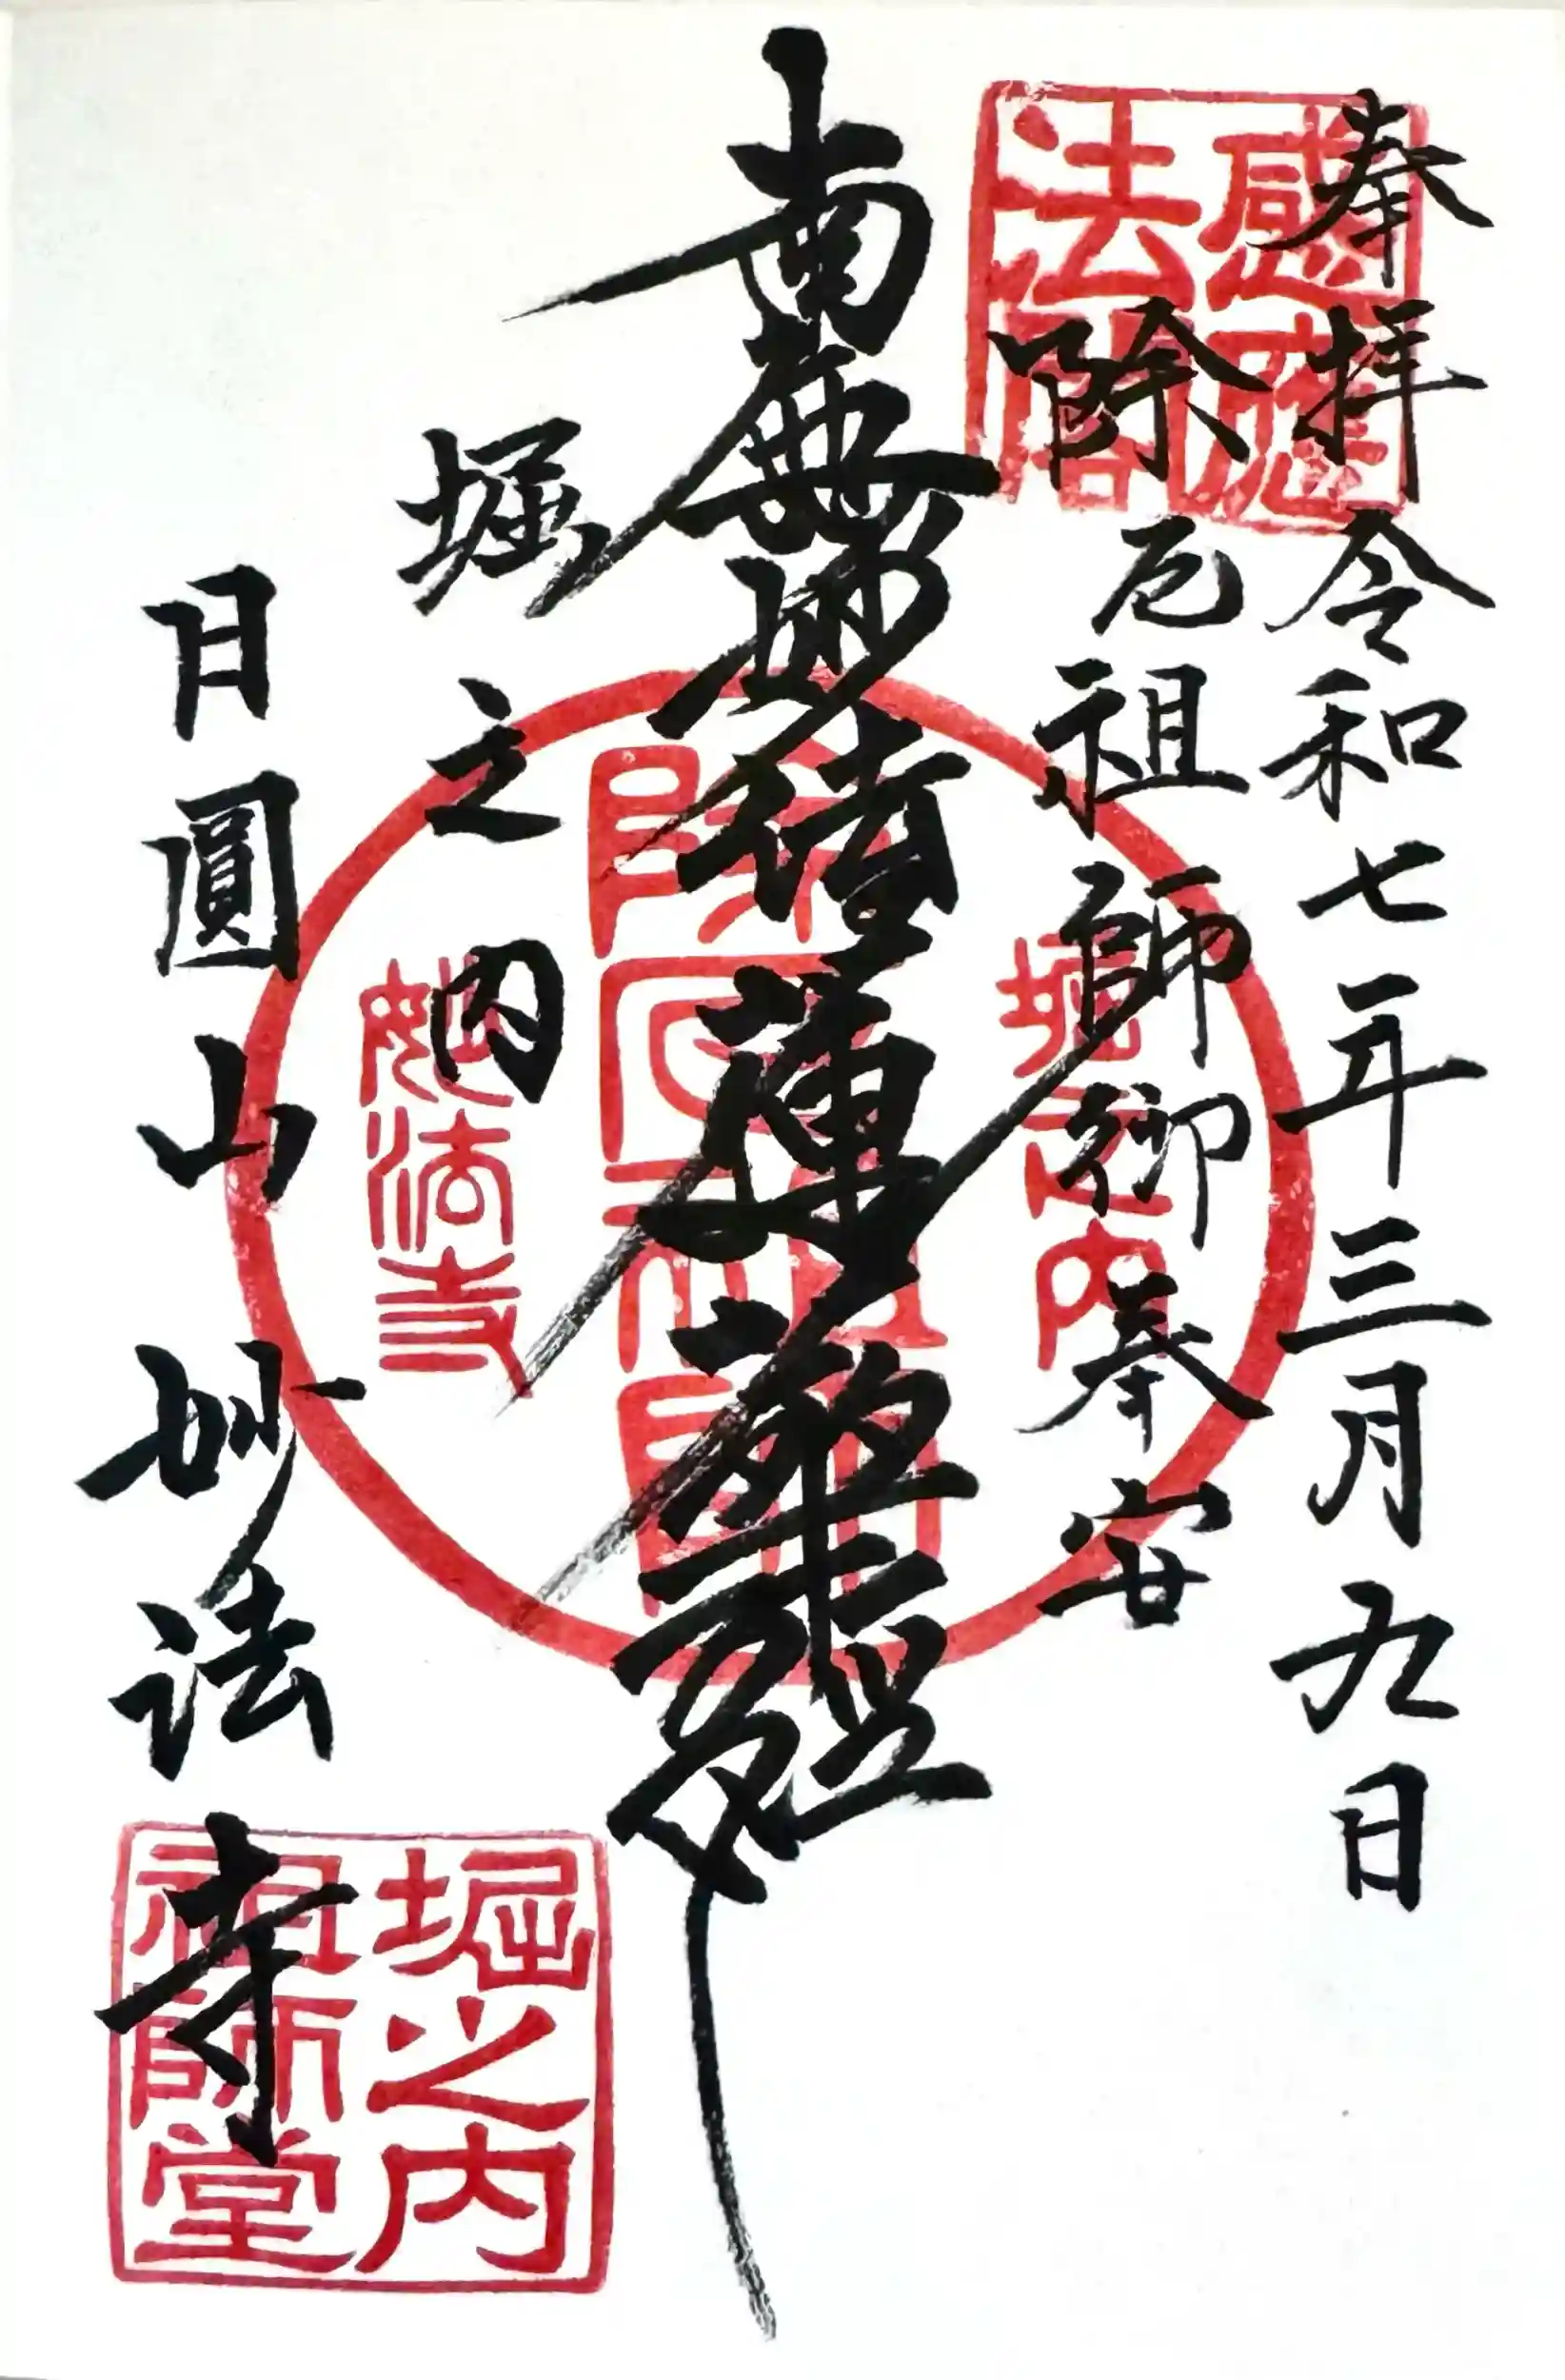 奉拝 令和七年三月九日
除厄祖師御奉安
南無妙法蓮華經
堀之内
日圓山 妙法寺
感應
堀之内
除厄祖師
妙法寺
堀之内
祖師堂